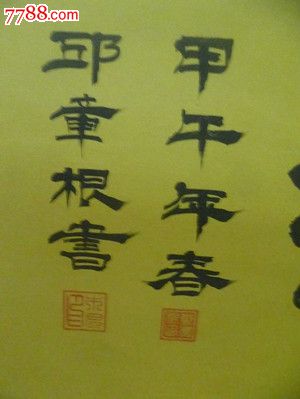 7788.com
甲午年春
邱童根書